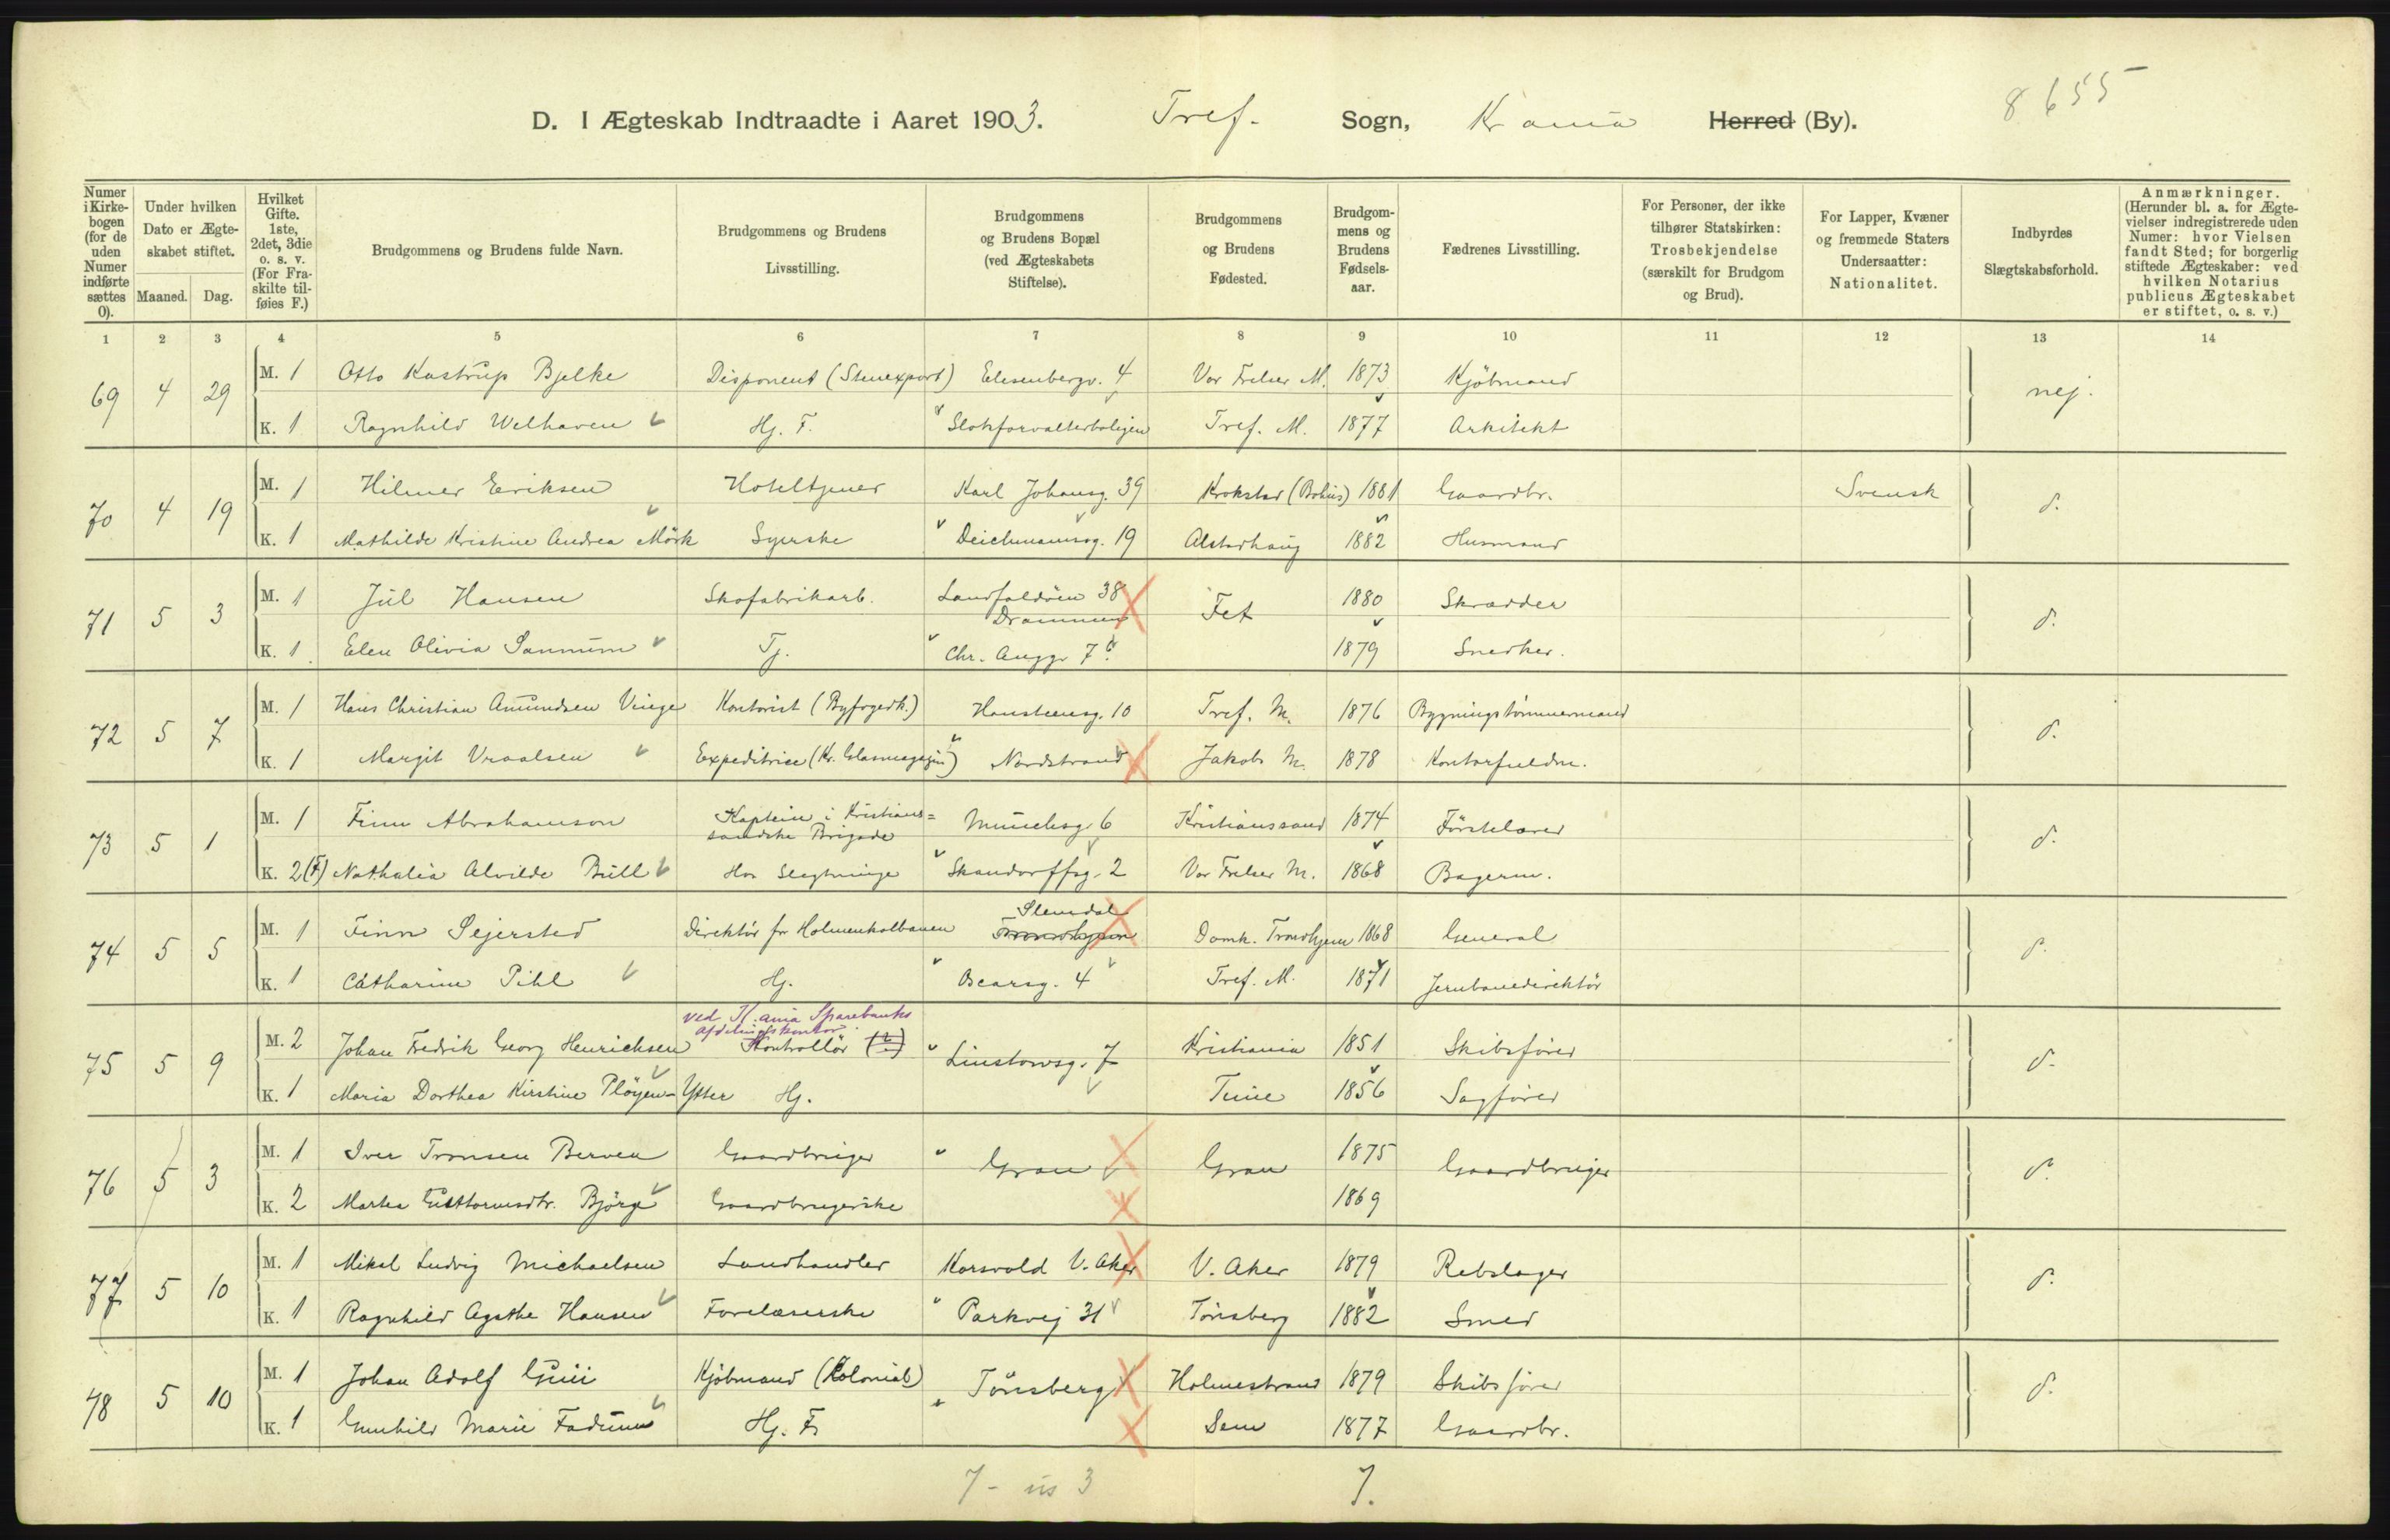 8655
D. I Ægteskab Indtraadte i Aaret 1903. Tref. Sogn, Krania Herred (By).
Numer i Kirkebogen (for de uden Numer indførte sættes 0).
Under hvilken Dato er Ægteskabet stiftet.
Maaned. Dag.
Hvilket Gifte. 1ste, 2det, 3die o. s. v. (For Fraskilte tilføies F.)
Brudgommens og Brudens fulde Navn.
Brudgommens og Brudens Livsstilling.
Brudgommens og Brudens Bopæl (ved Ægteskabets Stiftelse).
Brudgommens og Brudens Fødested.
Brudgommens og Brudens Fødselsaar.
Fædrenes Livsstilling.
For Personer, der ikke tilhører Statskirken: Trosbekjendelse (særskilt for Brudgom og Brud).
For Lapper, Kvæner og fremmede Staters Undersaatter: Nationalitet.
Indbyrdes Slægtskabsforhold.
Anmærkninger. (Herunder bl. a. for Ægtevielser indregistrerede uden Numer: hvor Vielsen fandt Sted; for borgerlig stiftede Ægteskaber: ved hvilken Notarius publicus Ægteskabet er stiftet, o. s. v.)
1 2 3 4 5 6 7 8 9 10 11 12 13 14
69 4 29 M. 1 Otto Kastrup Bjelke Disponent (Stenexport) Elisenbergv. 4 Vor Frelser M. 1873 Kjöbmand nej.
K. 1 Ragnhild Welhaven Hj. F. Slotsforvalterboligen Tref. M. 1877 Arkitekt
70 4 19 M. 1 Hilmer Eriksen Hoteltjener Karl Johansg. 39 Krokstad (Bohus) 1881 Gaardbr. Svensk d.
K. 1 Mathilde Kristine Andrea Mörk Syerske Deichmansg. 19 Alstadhaug 1882 Husmand
71 5 3 M. 1 Jul Hansen Skofabrikarb. Landfaldöen 38 Drammen Fet 1880 Skrædder d.
K. 1 Elen Olivia Sannum Tj. Chr. Auggt 7 c. 1879 Snedker.
72 5 7 M. 1 Hans Christian Amundsen Vinge Kontorist (Byfogedk.) Hansteensg. 10 Tref. M. 1876 Bygningstömmermand d.
K. 1 Margit Vraalsen Expeditrice (Kr. Glasmagasin) Nordstrand Jakobs M. 1878 Kontorfuldm.
73 5 1 M. 1 Finn Abrahamson Kaptein i Kristianssandske Brigade Munchsg. 6 Kristianssand 1874 Förstelærer d.
K. 2 (F) Nathalia Alvilde Bull Hos Slegtninge Skaudorffsg. 2 Vor Frelser M. 1868 Bagerm.
74 5 5 M. 1 Finn Sejersted Direktör for Holmenkolbanen Slemdal Domk. Trondhjem 1868 General d.
K. 1 Catharine Pihl Hj. Oscarsg. 4 Tref. M. 1871 Jernbanedirektör
ved K.ania Sparebanks Afdelingskontor.
75 5 9 M. 2 Johan Fredrik Georg Henrichsen Kontrollör Linstowsg. 7 Kristiania 1851 Skibsförer d.
K. 1 Maria Dorthea Kirstine Plöyen-Ytter Hj. Tune 1856 Sagförer
76 5 3 M. 1 Iver Tronsen Berven Gaardbruger Gran Gran 1875 Gaardbruger d.
K. 2 Marthea Guttormsdtr. Björge Gaardbrugerske 1869
77 5 10 M. 1 Mikal Ludvig Michaelsen Landhandler Korsvold V. Aker V. Aker 1879 Rebslager d.
K. 1 Ragnhild Agathe Hansen Forelæserske Parkvej 31 Tönsberg 1882 Smed
78 5 10 M. 1 Johan Adolf Gun Kjöbmand (Kolonial) Tönsberg Holmestrand 1879 Skibsförer d.
K. 1 Gunhild Marie Fadum Hj. F. Sem 1877 Gaardbr.
7 - us 3 7.